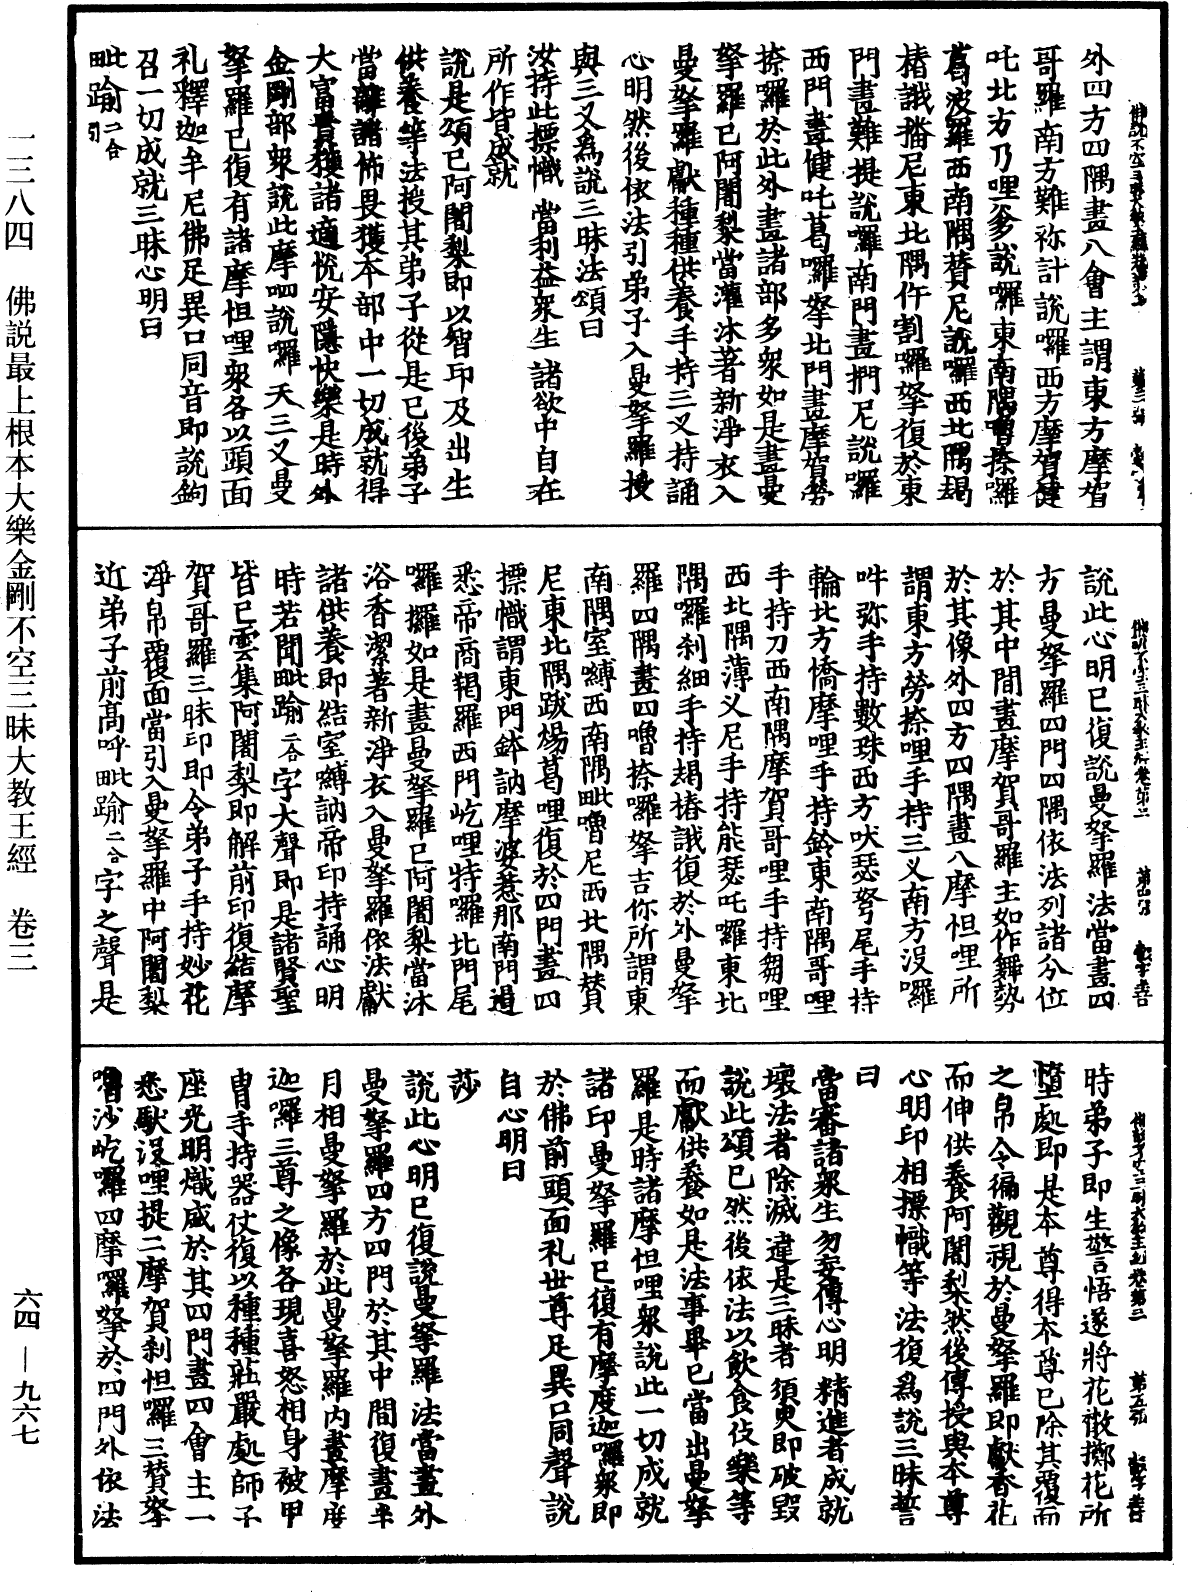 外四方四隅畫八會主謂東方摩賀
哥羅南方難祢計說囉西方摩賀健
吒北方乃哩爹說囉東南隅嚕捺囉
葛波羅西南隅贊尼說囉西北隅朅
樁誐播尼東北隅仵割囉拏復於東
門畫難提說囉南門畫捫尼說囉
西門畫健吒葛囉拏北門畫摩賀勞
捺囉於此外畫諸部多衆如是畫曼
拏羅已阿闍梨當灌沐著新淨衣入
曼拏羅獻種種供養手持三叉持誦
心明然後依法引弟子入曼拏羅授
與三叉為說三昧法頌曰
汝持此摽幟　當利益衆生　諸欲中自在
所作皆成就
說是頌已阿闍梨即以智印及出生
供養等法授其弟子從是已後弟子
當離諸怖畏獲本部中一切成就得
大富貴獲諸適悅安隱快樂是時外
金剛部衆說此摩呬說囉天三叉曼
拏羅已復有諸摩怛哩衆各以頭面
礼釋迦牟尼佛足異口同音即說鉤
召一切成就三昧心明曰
毗踰二合引
說此心明已復說曼拏羅法當畫四
方曼拏羅四門四隅依法列諸分位
於其中間畫摩賀哥羅主如作舞勢
於其像外四方四隅畫八摩怛哩所
謂東方勞捺哩手持三叉南方沒囉
吽弥手持數珠西方吠瑟弩尾手持
輪北方憍摩哩手持鈴東南隅哥哩
手持刀西南隅摩賀哥哩手持芻哩
西北隅薄叉尼手持能瑟吒囉東北
隅囉刹細手持朅樁誐復於外曼拏
羅四隅畫四嚕捺囉拏吉你所謂東
南隅室嚩西南隅毗嚕尼西北隅贊
尼東北隅跋楊葛哩復於四門畫四
摽幟謂東門鉢訥摩婆惹那南門過
悉帝商羯羅西門屹哩特囉北門尾
囉攞如是畫曼拏羅已阿闍梨當沐
浴香潔著新淨衣入曼拏羅依法獻
諸供養即結室嚩訥帝印持誦心明
時若聞毗踰二合字大聲即是諸賢聖
皆已雲集阿闍梨即解前印復結摩
賀哥羅三昧印即令弟子手持妙花
淨帛覆面當引入曼拏羅中阿闍梨
近弟子前高呼毗踰二合字之聲是
時弟子即生警悟遂將花散擲花所
墮處即是本尊得本尊已除其覆面
之帛令徧觀視於曼拏羅即獻香花
而伸供養阿闍梨然後傳授與本尊
心明印相摽幟等法復爲說三昧誓
曰
當審諸衆生　勿妄傳心明　精進者成就
壞法者除滅　違是三昧者　須臾即破毀
說此頌已然後依法以飲食伎樂等
而獻供養如是法事畢已當出曼拏
羅是時諸摩怛哩衆說此一切成就
諸印曼拏羅已復有摩度迦囉衆即
於佛前頭面礼世尊足異口同聲說
自心明曰
莎
說此心明已復說曼拏羅法當畫外
曼拏羅四方四門於其中間復畫半
月相曼拏羅於此曼拏羅內畫摩度
迦囉三尊之像各現喜怒相身被甲
冑手持器仗復以種種莊嚴處師子
座光明熾盛於其四門畫四會主一
悉馱沒哩提二摩賀刹怛囉三贊拏
嚕沙屹囉四摩囉拏於四門外依法
一三八四　佛說最上根本大樂金剛不空三昧大教王經　卷三
六四—九六七